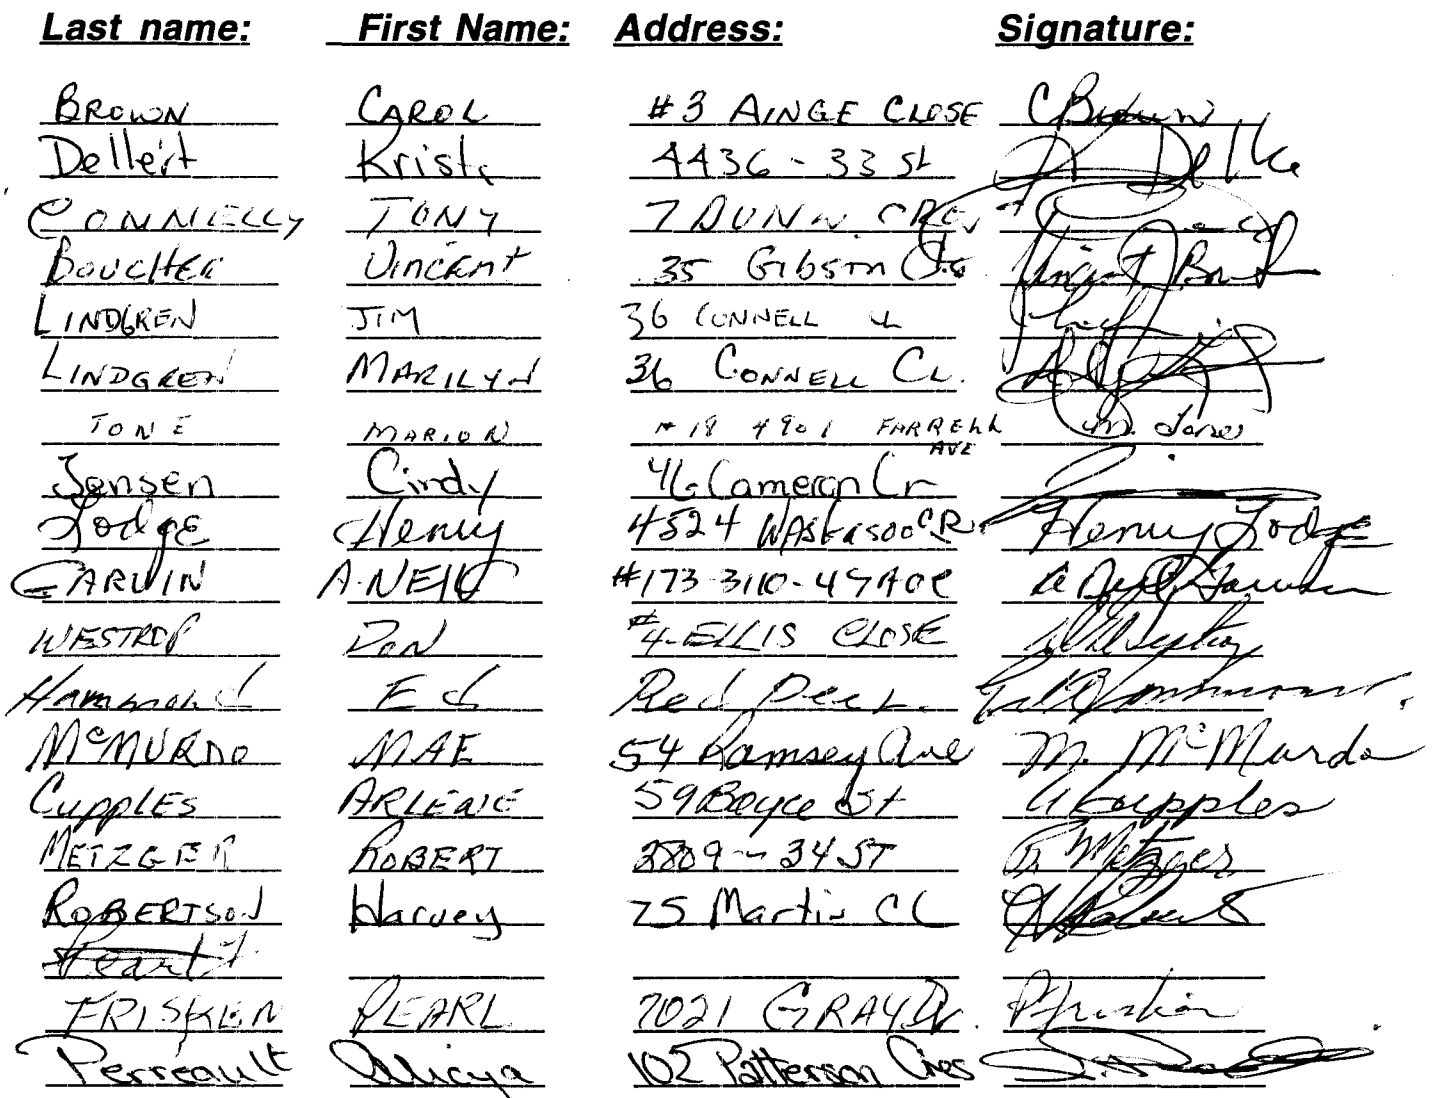 Last name: First Name: Address: Signature:
BROWN CAROL #3 AINGE CLOSE C Brown
Dellert Krista 4436 - 33 St
CONNELLY TONY 7 DUNN CRES
BOUCHER Vincent 35 Gibson Cls Vincent
LINDGREN JIM 36 CONNELL CL
LINDGREN MARILYN 36 CONNELL CL.
TONE MARION # 18 4901 FARRELL AVE M. Tone
Jensen Cindy 46 Cameron Cr
Lodge Henry 4524 WASKASOO CR. Henry Lodge
GARVIN A. NEIL #173-3110-47AVE A Neil Garvin
WESTROP DON #4-ELLIS CLOSE
Hammond Ed Red Deer.
McMURDO MAE 54 Ramsey Ave M. McMurdo
Cupples ARLENE 59 Boyce St A Cupples
METZGER ROBERT 2809 - 34 ST R Metzger
ROBERTSON Harvey 75 Martin CL
FRISKEN PEARL 7021 GRAY DR. P Frisken
Perreault Alicya 102 Patterson Cres